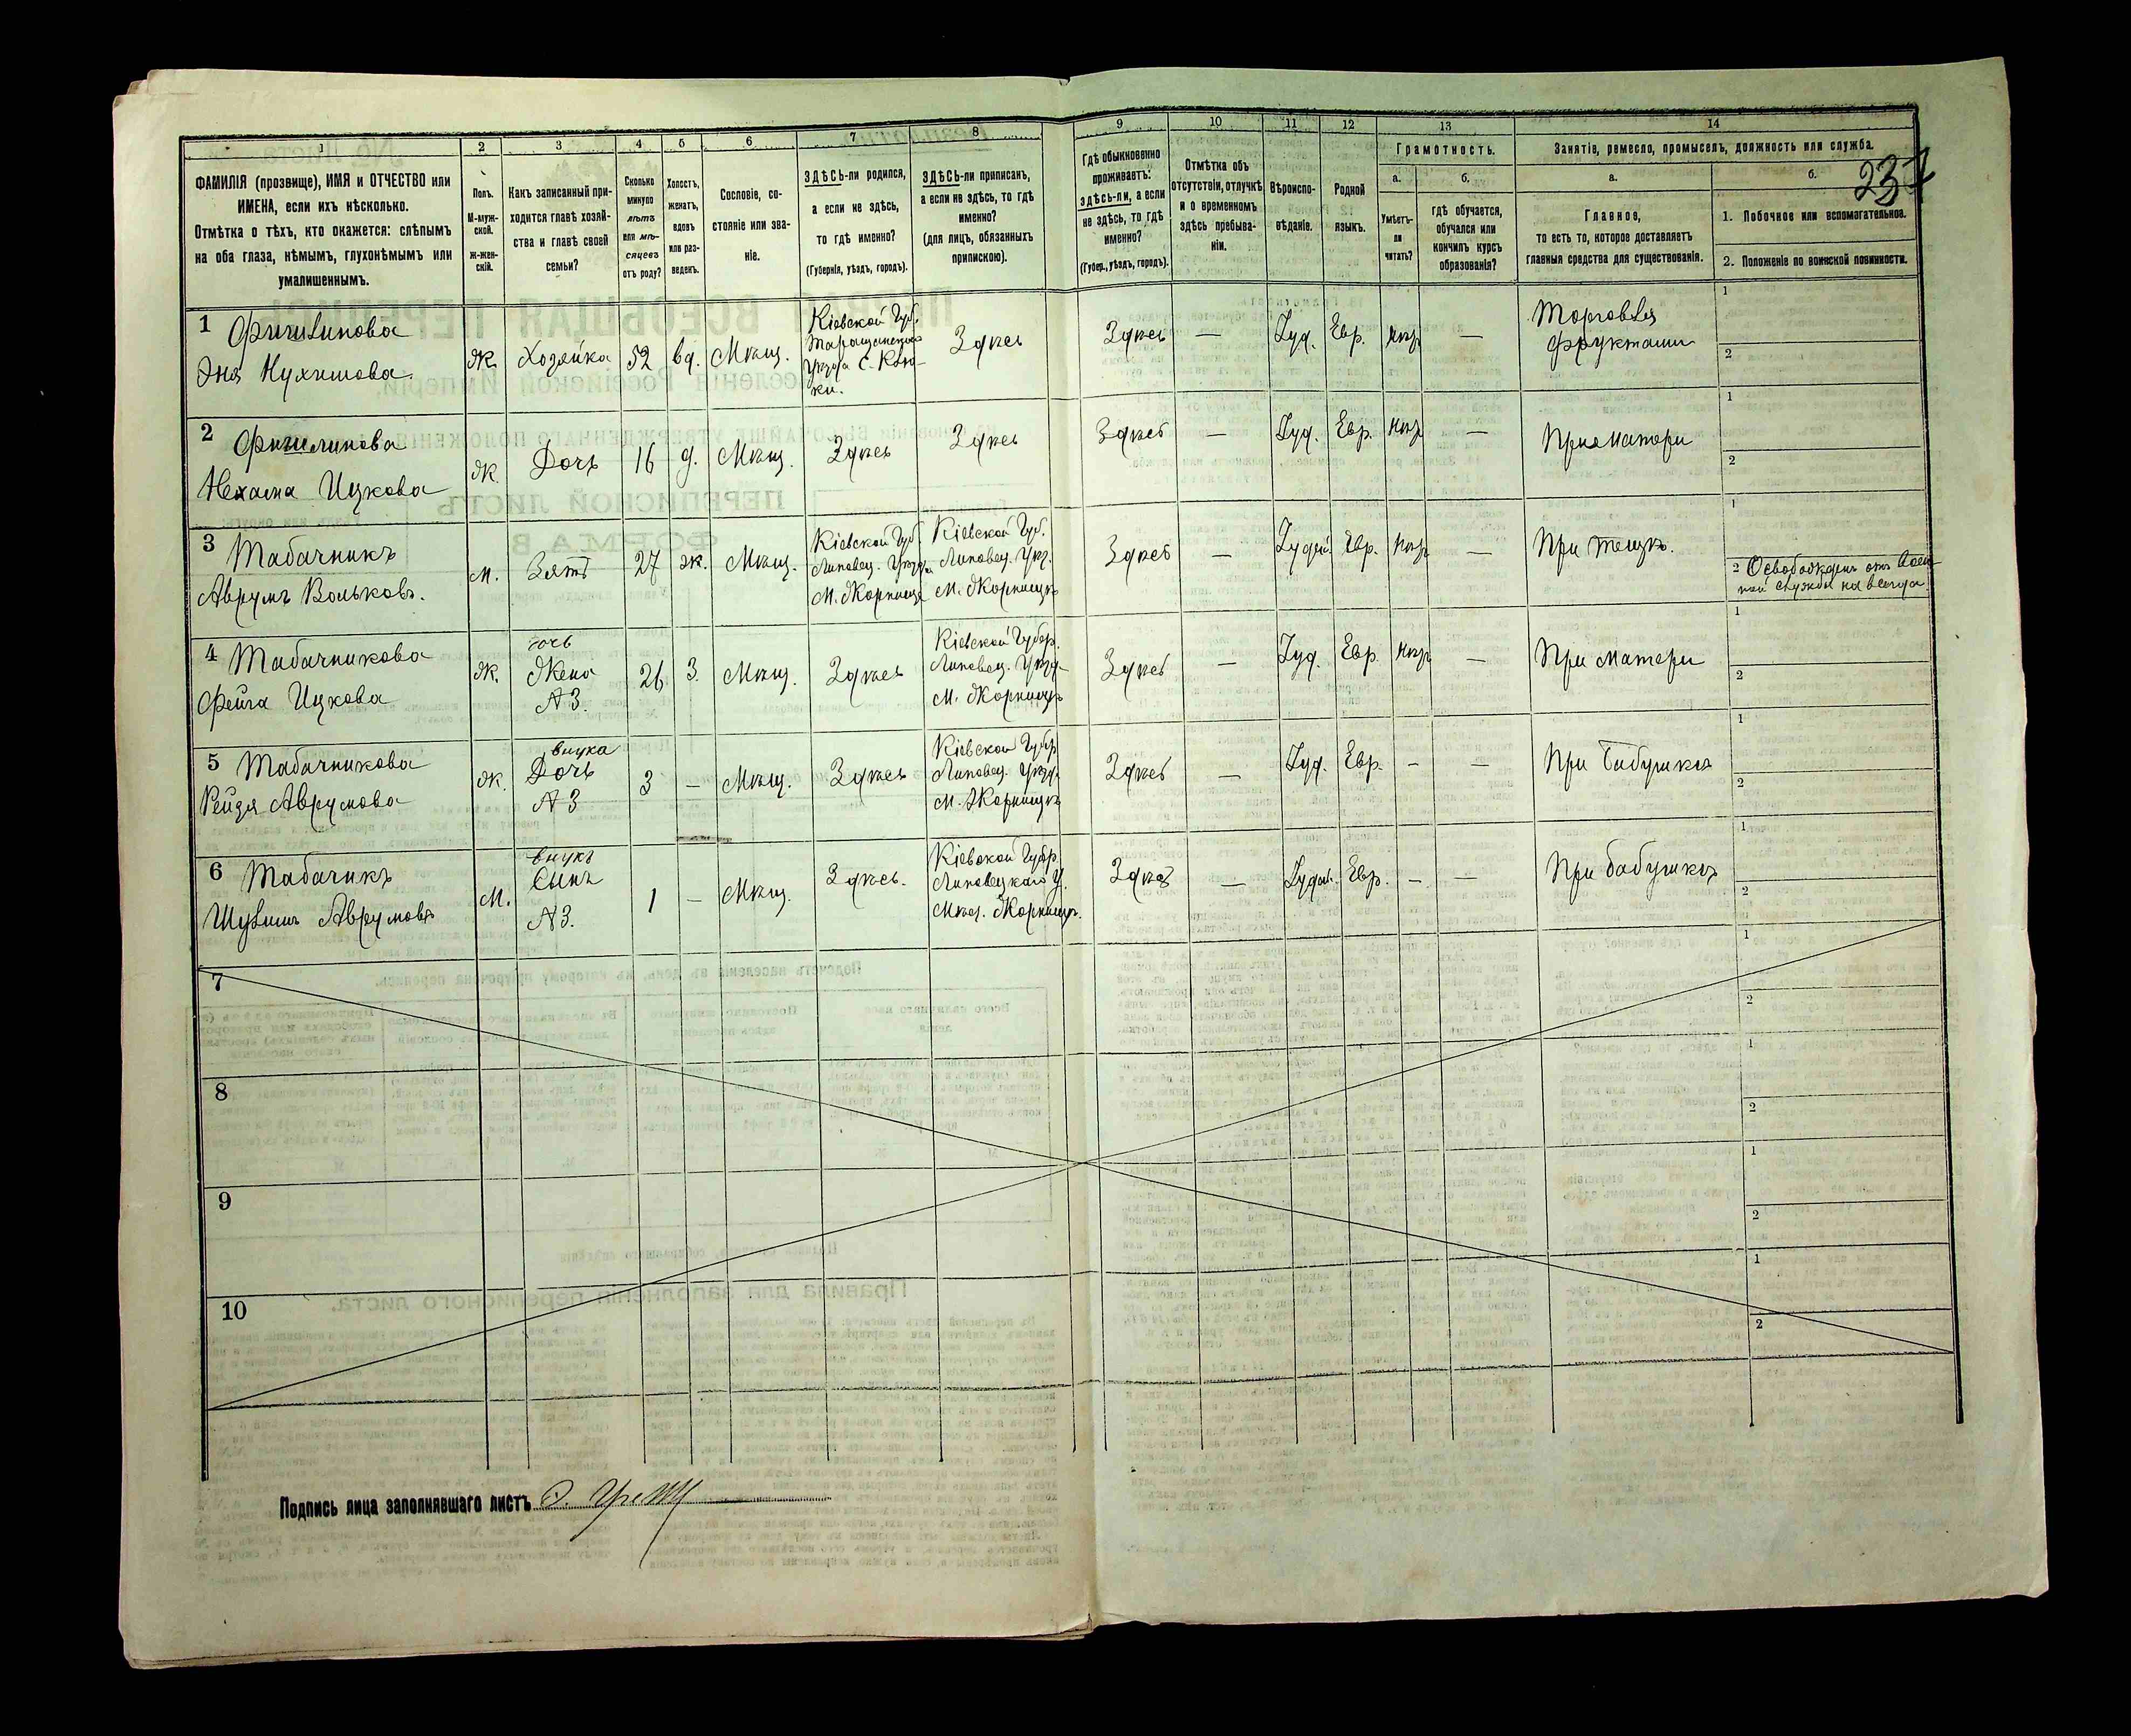 1 2 3 4 5 6 7 8 9 10 11 12 13 14
ФАМИЛІЯ (прозвище), ИМЯ и ОТЧЕСТВО или
ИМЕНА, если ихъ нѣсколько.
Отмѣтка о тѣхъ, кто окажется: слѣпымъ
на оба глаза, нѣмымъ, глухонѣмымъ или
умалишеннымъ.
Полъ.
М-муж-
ской.
ж-жен-
скій.
Какъ записанный при-
ходится главѣ хозяй-
ства и главѣ своей
семьи?
Сколько
минуло
лѣтъ
или мѣ-
сяцевъ
отъ роду?
Холостъ,
женатъ,
вдовъ
или раз-
веденъ.
Сословіе, со-
стояніе или зва-
ніе.
ЗДѢСЬ-ли родился,
а если не здѣсь,
то гдѣ именно?
(Губернія, уѣздъ, городъ).
ЗДѢСЬ-ли приписанъ,
а если не здѣсь, то гдѣ
именно?
(для лицъ, обязанныхъ
припискою).
Гдѣ обыкновенно
проживаетъ:
здѣсь-ли, а если
не здѣсь, то гдѣ
именно?
(Губер., уѣздъ, городъ).
Отмѣтка объ
отсутствіи, отлучкѣ
и о временномъ
здѣсь пребыва-
ніи.
Вѣроиспо-
вѣданіе.
Родной
языкъ.
Грамотность.
а.
Умѣетъ-
ли
читать?
б.
гдѣ обучается,
обучался или
кончилъ курсъ
образованія?
Занятіе, ремесло, промыселъ, должность или служба.
а.
Главное,
то есть то, которое доставляетъ
главныя средства для существованія.
б.
237
1. Побочное или вспомагательное.
2. Положеніе по воинской повинности.
1
Эня
ж.
Хозяйка
52
вд.
Мѣщ.
Кіевской Губ.
Таращанскаго
Уѣзда С.
Здѣсь
Здѣсь
—
Іуд.
Евр.
нѣт
—
Торговля
фруктами
1
2
2
Нехама Ицкова
ж.
Дочь
16
д.
Мѣщ.
Здѣсь
Здѣсь
Здѣсь
—
Іуд.
Евр.
нѣт
—
При матери
1
2
3 Табачникъ
Аврумъ Вольковъ.
м.
Зять
27
ж.
Мѣщ.
Кіевской Губ.
Липовец. Уѣзда
М. Жорнище
Кіевской Губ.
Липовец. Уѣз.
М. Жорнищѣ
Здѣсь
—
Іудей.
Евр.
нѣт
—
При тещѣ.
1
2 Освобожденъ отъ воен-
ной службы на всегда
4 Табачникова
Фейга Ицкова
ж.
дочь
Жена
№ 3.
26
З.
Мѣщ.
Здѣсь
Кіевской Губер.
Липовец. Уѣзд.
М. Жорнищѣ
Здѣсь
—
Іуд.
Евр.
нѣт
—
При матери
1
2
5 Табачникова
Рейзя Аврумова
ж.
внука
Дочь
№ 3
3
—
Мѣщ.
Здѣсь
Кіевской Губер.
Липовец. Уѣзд.
М. Жорнищѣ
Здѣсь
—
Іуд.
Евр.
—
—
При бабушкѣ
1
2
6 Табачикъ
Аврумовъ
м.
внукъ
Сынъ
№ 3.
1
—
Мѣщ.
Здѣсь.
Кіевской Губер.
Липовецкаго У.
Мѣст. Жорнищѣ.
Здѣсь
—
Іудей.
Евр.
—
—
При бабушкѣ
1
2
7
1
2
8
1
2
9
1
2
10
1
2
Подпись лица заполнявшаго листъ